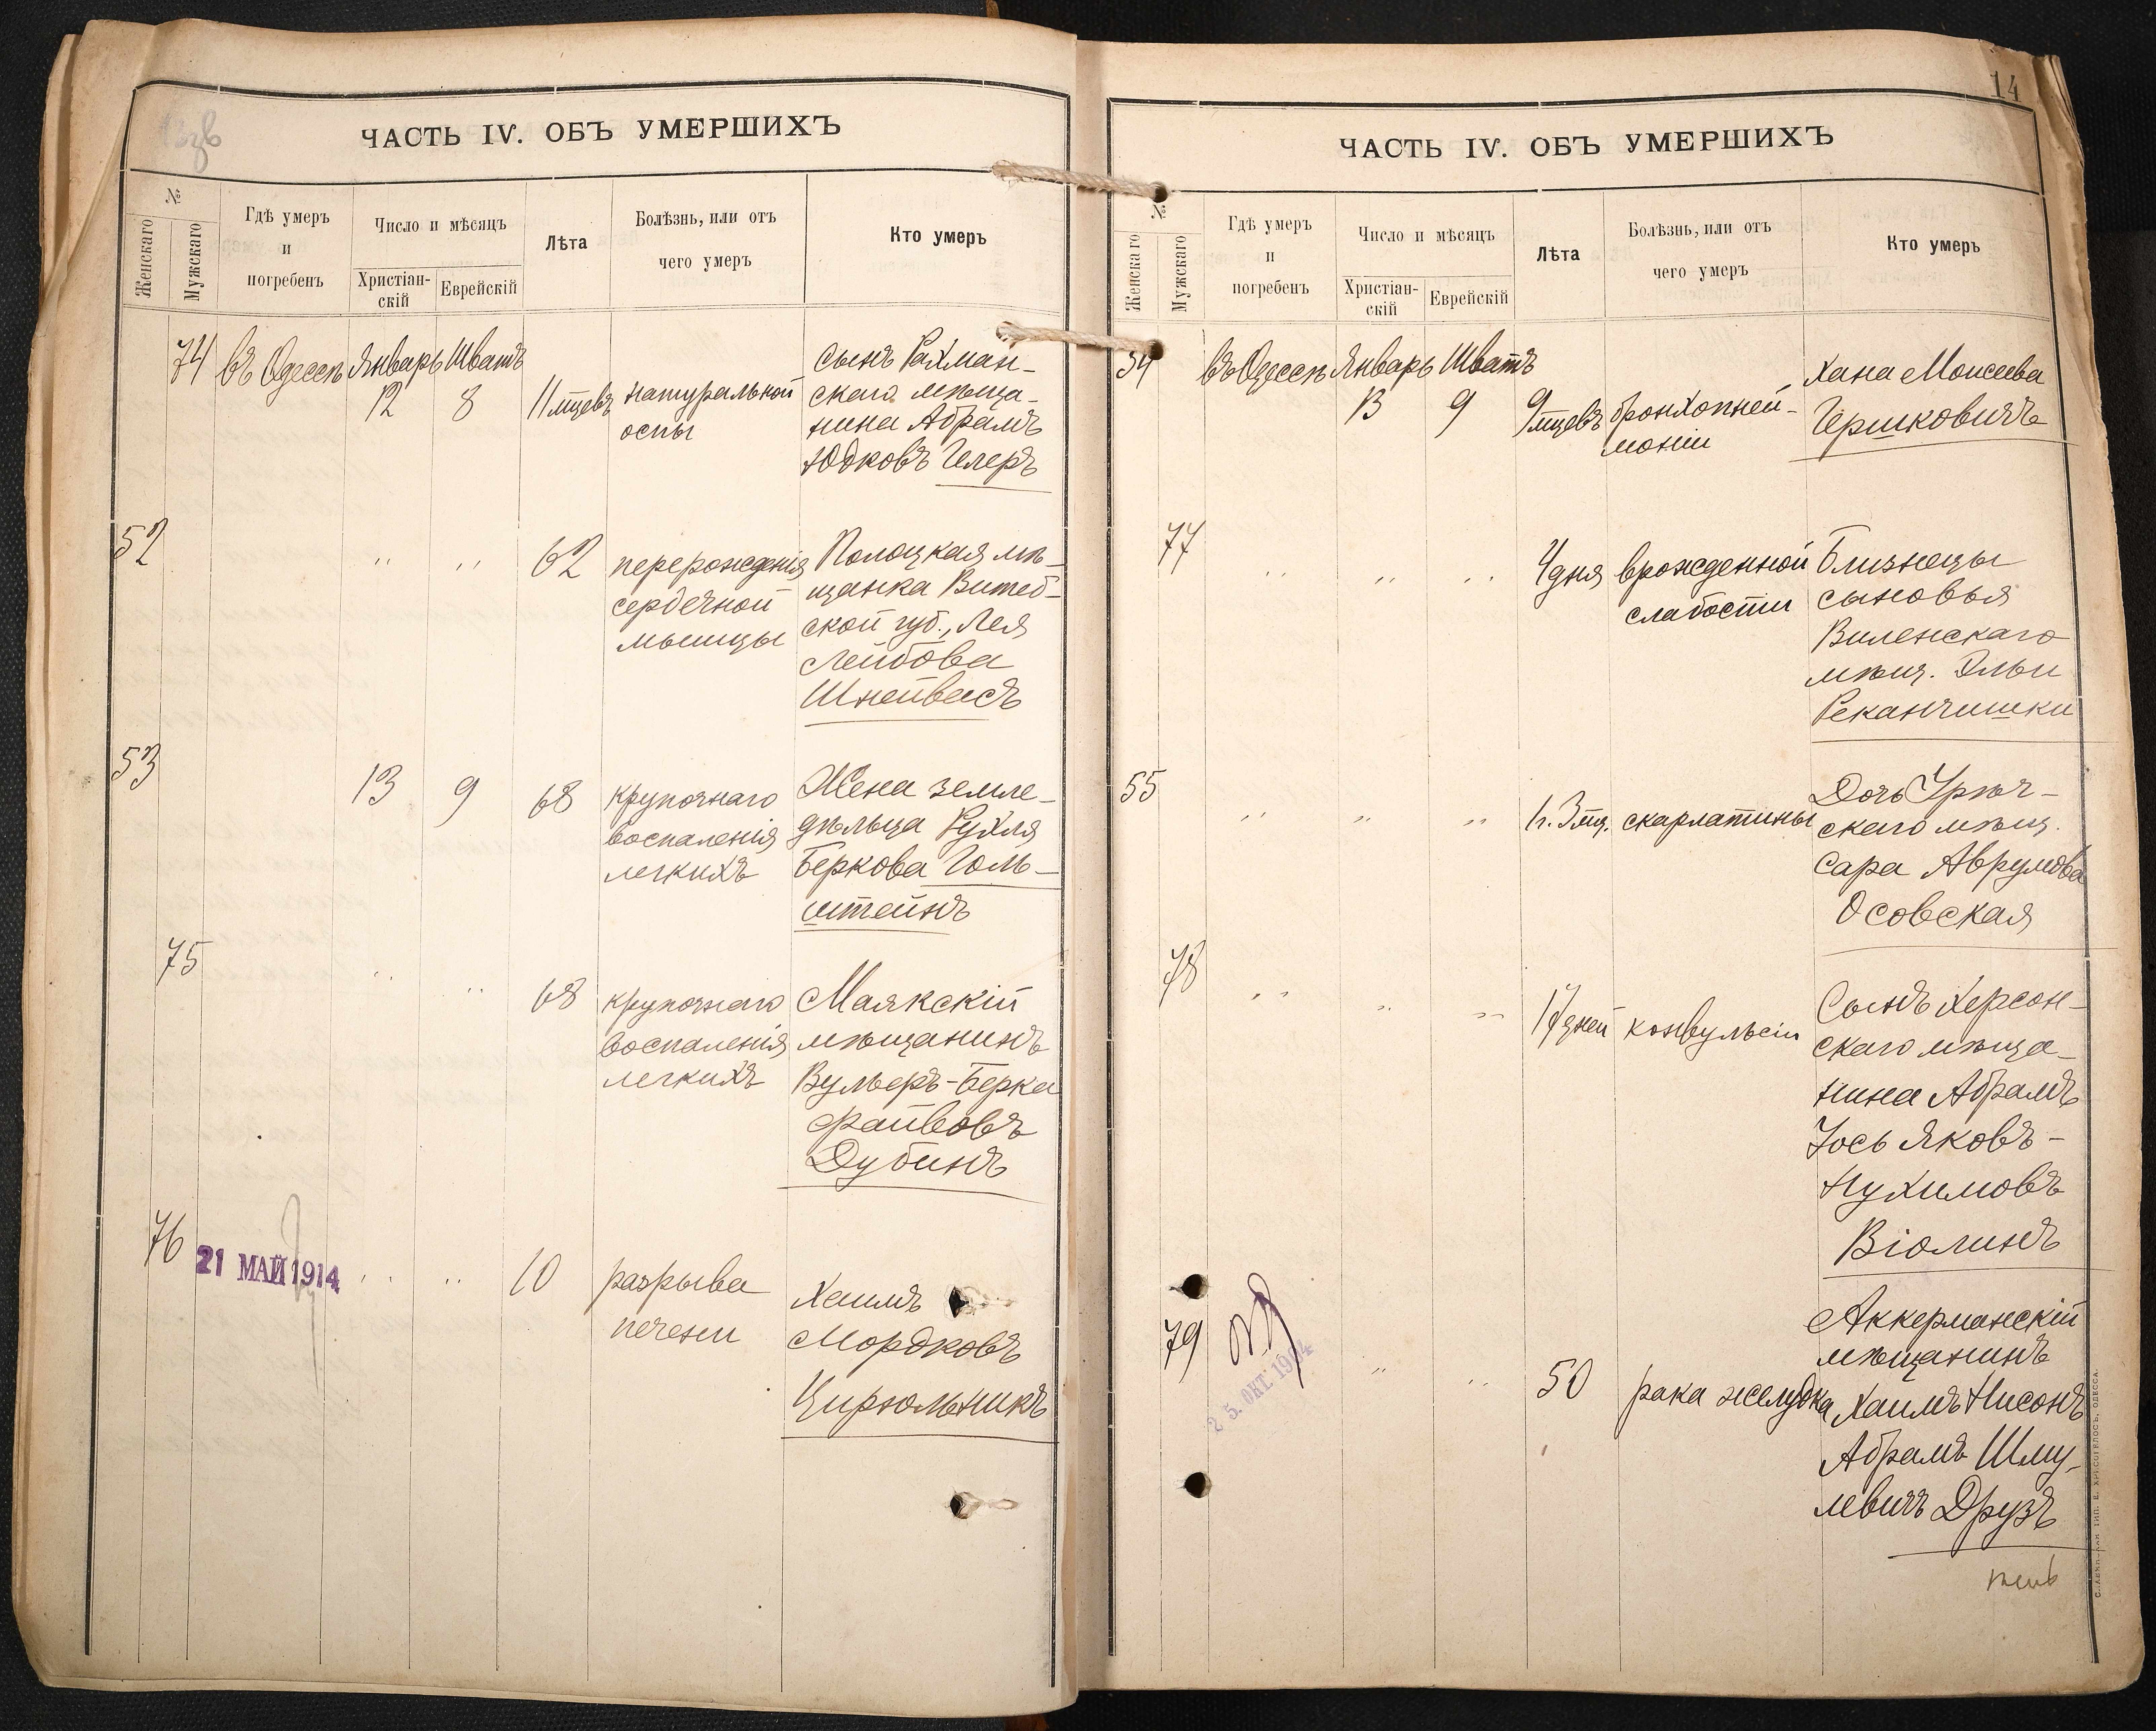 ЧАСТЬ IV. ОБЪ УМЕРШИХЪ
№
Женскаго
Мужскаго
Гдѣ умеръ
и
погребенъ
Число и мѣсяцъ
Христіан-
скій
Еврейскій
Лѣта
Болѣзнь, или отъ
чего умеръ
Кто умеръ
74 въ Одессѣ Январь Шватъ
12 8 11 мцевъ натуральной
оспы
сынъ Рахман-
скаго мѣща-
нина Абрамъ
Юдковъ Гелеръ
52 " " 62 перерожденія
сердечной
мышцы
Полоцкая мѣ-
щанка Витеб-
ской губ., Лея
Лейбова
Шнейвасъ
53 13 9 68 крупознаго
воспаленія
легкихъ
Жена земле-
дѣльца Рухля
Беркова Голь-
штейнъ
75 " " 68 крупознаго
воспаленія
легкихъ
Маякскій
мѣщанинъ
Вульфъ-Берка
Файвовъ
Дубинъ
76 21 МАЙ 1914 " " 10 разрыва
печени
Хаимъ
Мордковъ
Цирюльникъ
14
ЧАСТЬ IV. ОБЪ УМЕРШИХЪ
№
Женскаго
Мужскаго
Гдѣ умеръ
и
погребенъ
Число и мѣсяцъ
Христіан-
скій
Еврейскій
Лѣта
Болѣзнь, или отъ
чего умеръ
Кто умеръ
54 въ Одессѣ Январь Шватъ
13 9 9 мцевъ бронхопней-
моніи
Хана Моисеева
Гершковичъ
77 " " " 4 дня врожденной
слабости
Близнецы
сыновья
Виленскаго
мѣщ. Эльи
Реканчишки
55 " " " 1 г. 3 мц. скарлатины
Дочь Урѣч-
скаго мѣщ.
Сара Аврумова
Осовская
78 " " " 17 дней конвульсіи
Сынъ Херсон-
скаго мѣща-
нина Абрамъ
Іось Яковъ-
Нухимовъ
Віолинъ
79 25. ОКТ. 19 4 " " 50 рака желудка
Аккерманскій
мѣщанинъ
Хаимъ Нисонъ
Абрамъ Шму-
левичъ Друзъ